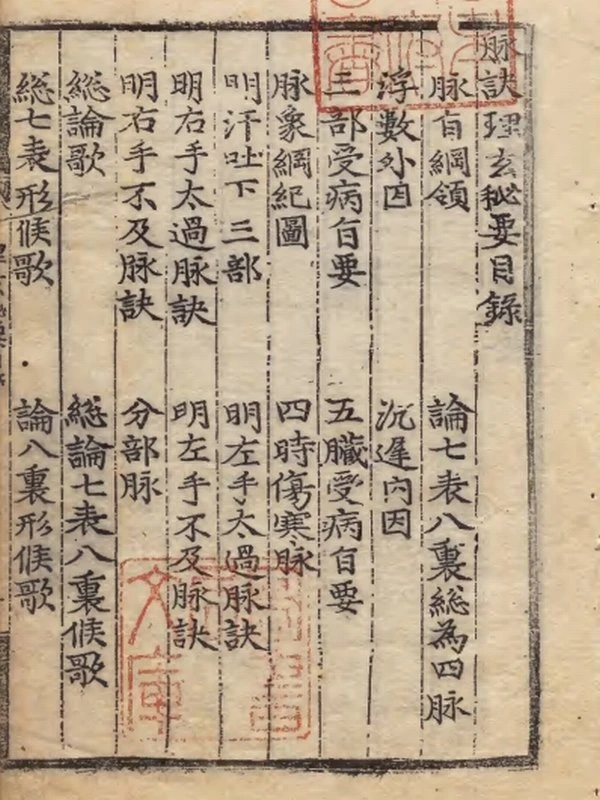 脉訣理玄秘要目錄
脉自綱領　論七表八裏総為四脉
浮數外因　沉遲内因
三部受病自要　五臟受病自要
脉象綱紀圖　四時傷寒脉
明汗吐下三部　明左手太過脉訣
明右手太過脉訣　明左手不及脉訣
明右手不及脉訣　分部脉
総論歌　総論七表八裏候歌
総七表形候歌　論八裏形候歌
文庫